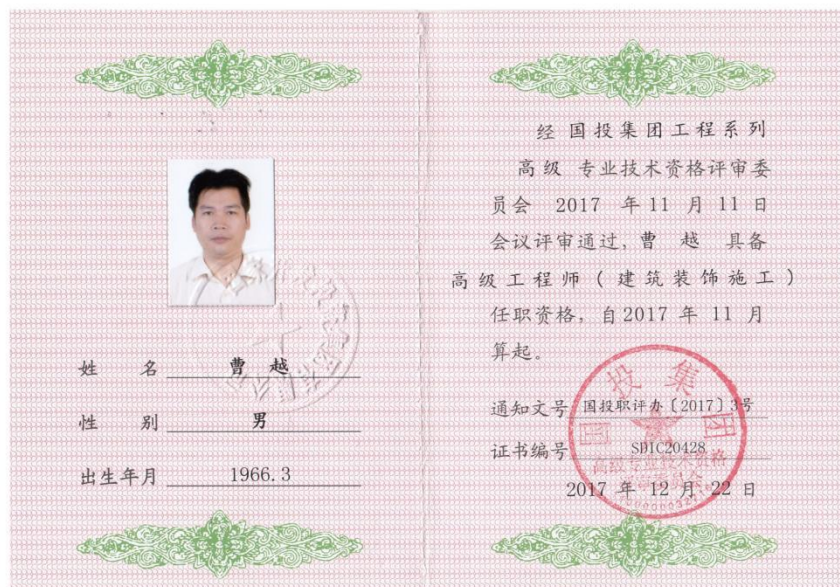 姓 名 曹 越
性 别 男
出生年月 1966.3
经 国投集团工程系列
高级 专业技术资格评审委
员会 2017 年 11 月 11 日
会议评审通过, 曹 越 具备
高级工程师（建筑装饰施工）
任职资格, 自 2017 年 11 月
算起。
通知文号 国投职评办〔2017〕3号
证书编号 SDIC20428
2017 年 12 月 22 日
国投集团
高级专业技术资格
评审委员会